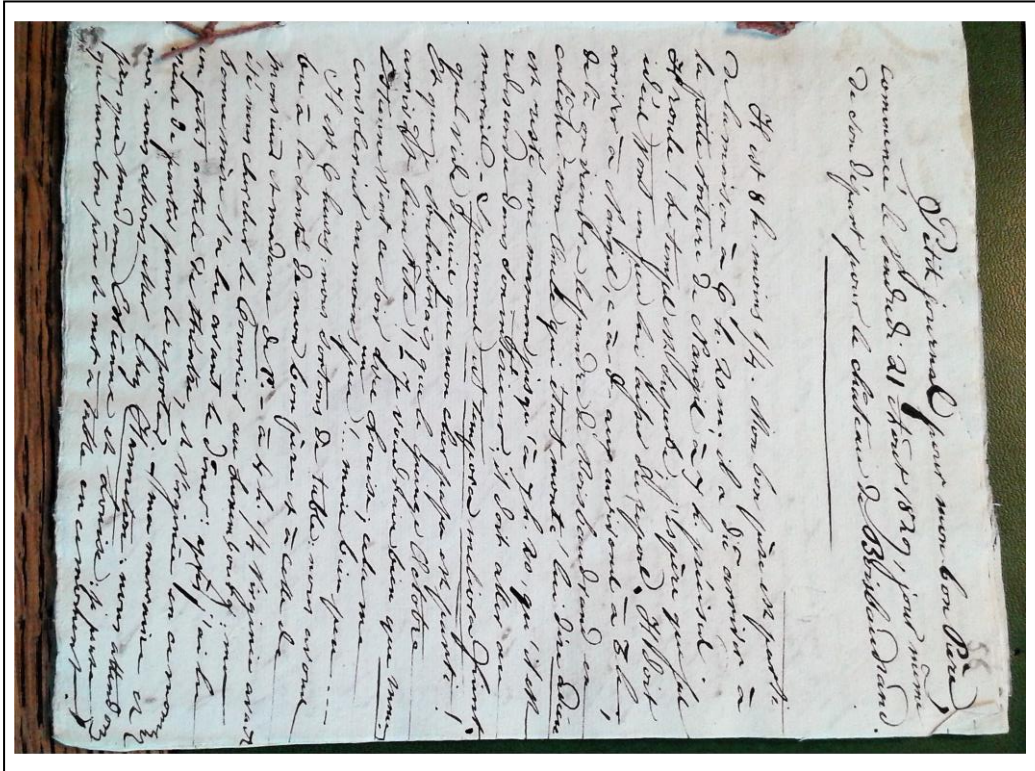 56
Petit journal pour mon bon Père,
commencé le Vendredi 21 Août 1829, jour même
de son départ pour le château de Boisbaudrand.
Il est 8 h. moins 1/4. Mon bon père est parti
de la maison à 6 h. 20 m. il a dû arriver à
la petite voiture de Nangis à 7 h. précises
Il roule! le temps est superbe; j'espère qu'ful
idée! vont un peu lui laps du repos. Il doit
arriver à Nangis, c-à-d aux environs à 3 h.,
de là on viendra le prendre de Boisbaudrand en
calèche. mon oncle qui était monté lui dire adieu
est resté avec maman jusqu'à 7 h. 20, qu'il est
redescendu dans son intérieur; il doit aller au
marais. Speramus ut tempora meliora fiant.
quel vide depuis que mon cher papa est parti!
Oh que je souhaiterais que le quinze Octobre
arrivât bien vite! je voudrais bien que mm.
Etienne vînt ce soir avec Louise; cela me
consolerait au moins un peu!.. mais bien peu....
Il est 6 heures, nous sortons de table, nous avons
bu à la santé de mon bon père et à celle de
monsieur et madame de P. à 4 h. 1/4 Virginie avait
été nous chercher le Courrier au Luxembourg; ma
bonne mère l'a lu avant le dîner; après j'ai lu
un petit article de théâtre, et Virginie va ce mom
vient de partir pour le reporter; ma marraine et
moi nous allons aller chez Hamilton: nous attendons
presque madame Etienne et Louise. je pense
que mon bon père se met à table en ce moment.